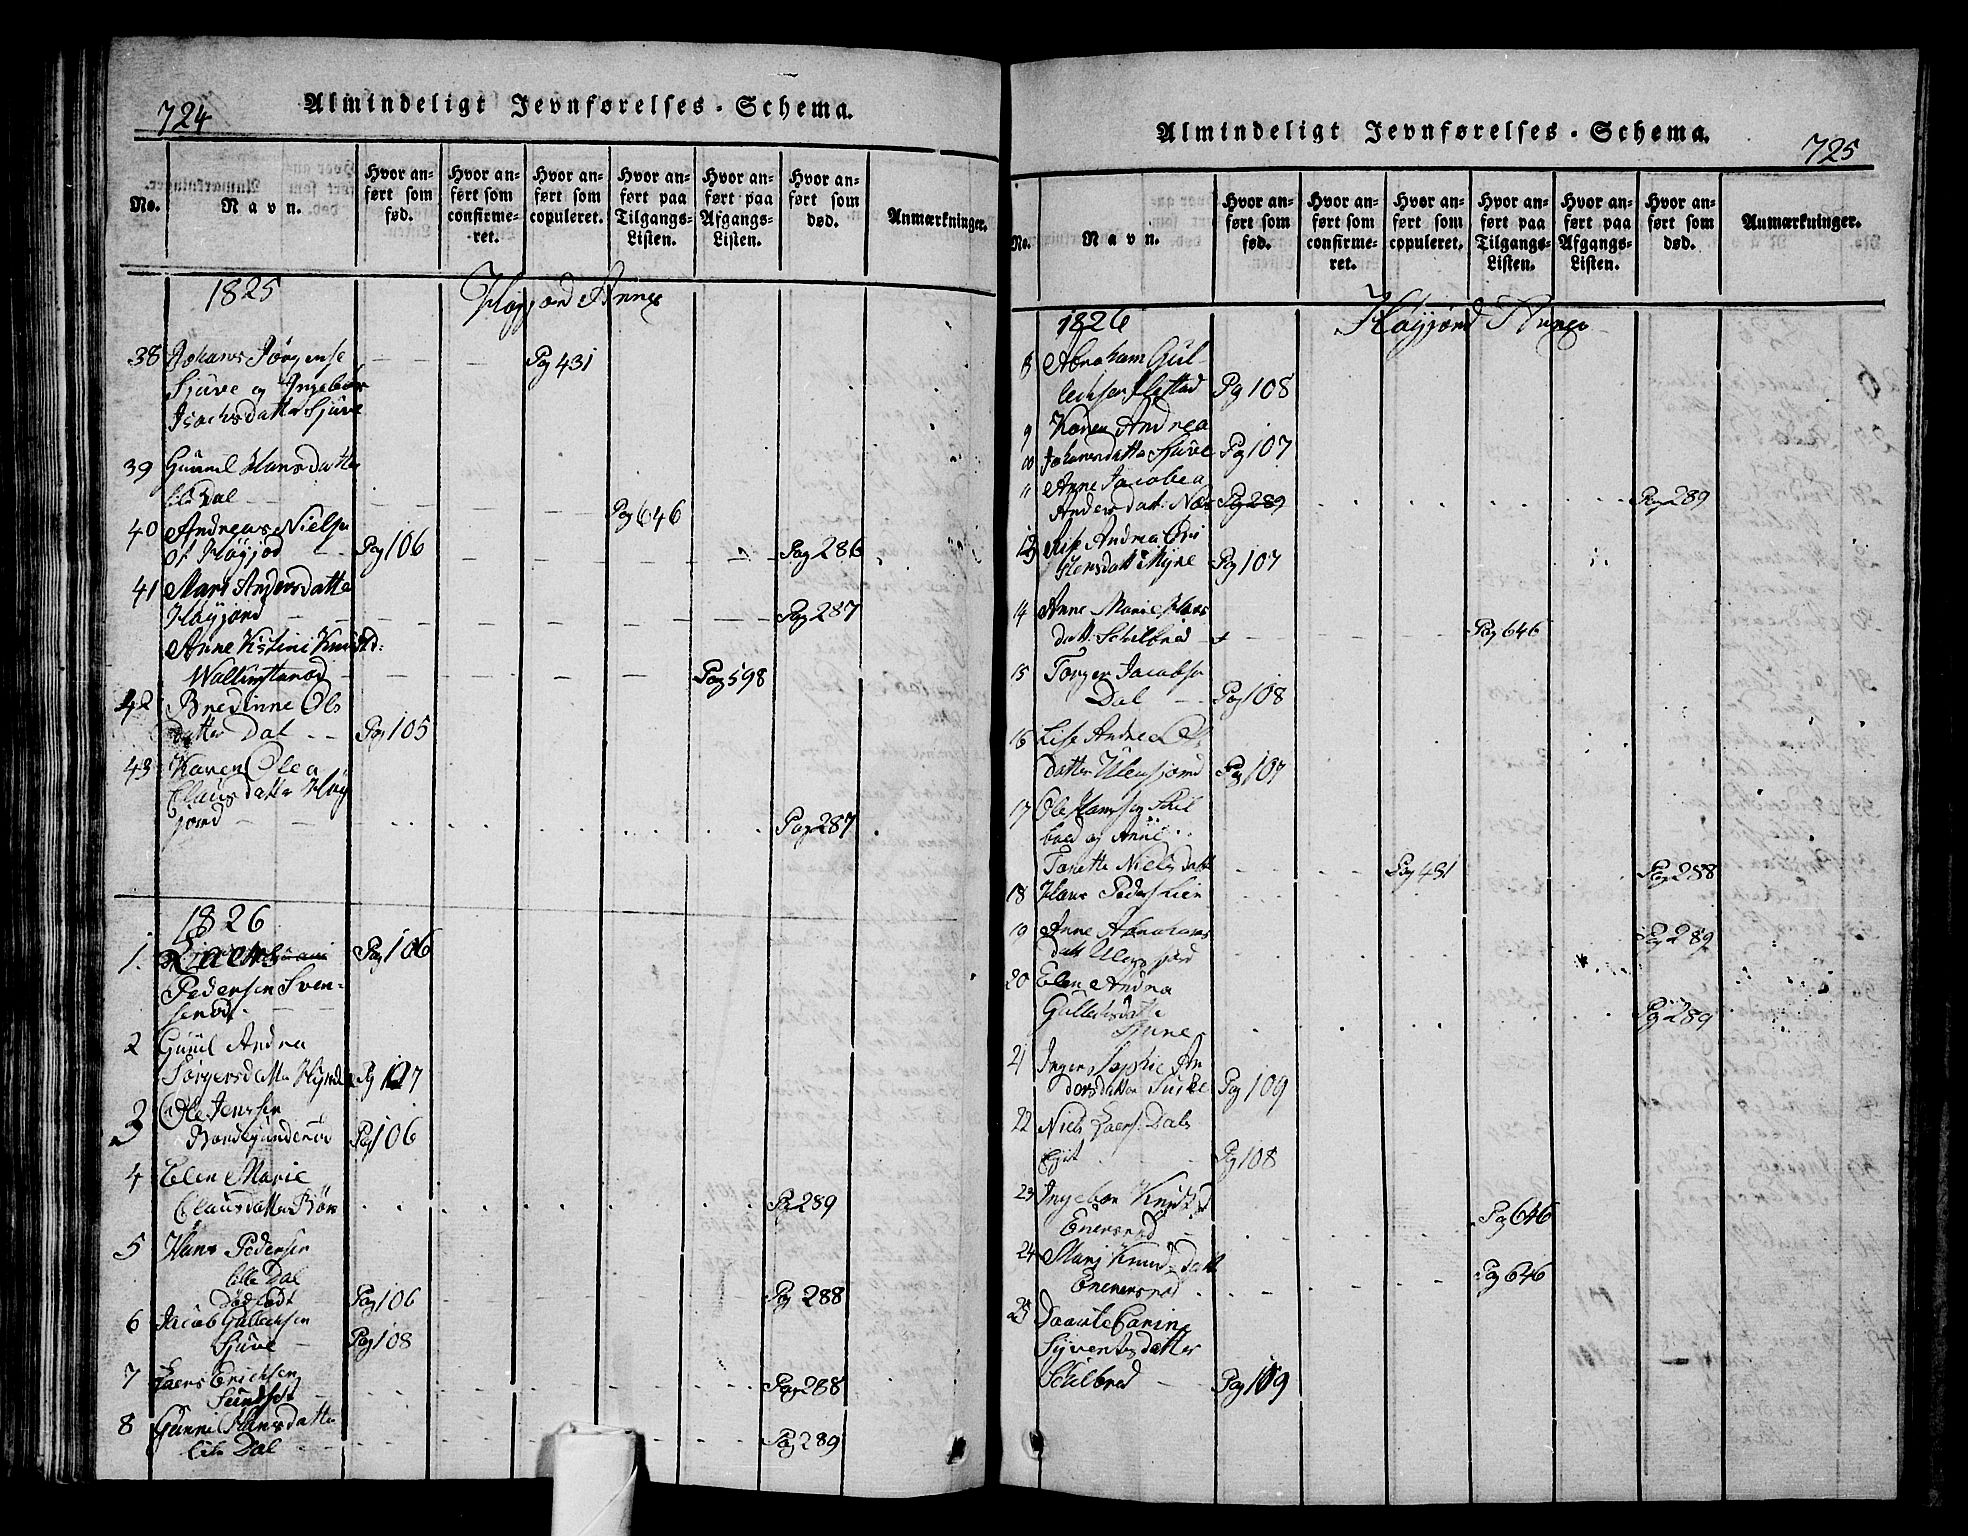 724
Almindeligt Jevnførelses-Schema.
No.
Navn.
Hvor anført som fød.
Hvor anført som confirmeret.
Hvor anført som copuleret.
Hvor anført paa Tilgangs-Listen.
Hvor anført paa Afgangs-Listen.
Hvor anført som død.
Anmærkninger.
1825 Høyjord Annex
38 Johans Jörgense
Sjúve og Ingebor
Isachsdatter Sjúve Pag 431
39 Gunnil Hansdatter
lille Dal Pag 646
40 Andreas Nielsen
Høyjord Pag 106 Pag 286
41 Mari Andersdatter
Høyjord Pag 287
Anne Kistine Knúdsd:
Pag 598
42 Bredinne Ols
datter Dal Pag 105
43 Karen Olea
Clausdatter Høy
jord Pag 287
1826
1. Laers Pag 106
Pedersen Sven-
2 Gunil Andrea
Torgersdatter Pag 127
3 Ole Jenssen
Pag 106
4 Elen Marie
Clausdatter Pag 289
5 Hans Pedersen
lille Dal
Dødfødt Pag 106 Pag 288
6 Jacob Gullichsen
Sjúve Pag 108
7 Laers Erichsen
Pag 288
8 Gunnil Hansdatter
lille Dal Pag 289
Almindeligt Jevnførelses-Schema.
725
No.
Navn.
Hvor anført som fød.
Hvor anført som confirmeret.
Hvor anført som copuleret.
Hvor anført paa Tilgangs-Listen.
Hvor anført paa Afgangs-Listen.
Hvor anført som død.
Anmærkninger.
1826 Høyjord Annex
8 Abraham Gúl
lichsen Pag 108
9 Karen Andrea
10 Johansdatter Sjúve Pag 107
11 Anne Jacobea
Andersdatt: Næs Pag 289 Pag 289
13 Andrea
Pag 107
14 Anne Marie
datt: Schilbred Pag 646
15 Torger Jacobsen
Dal Pag 108
16 Lise Andrea Ols
datter Pag 107
17 Ole Hansen Skil
bred og Anne
Tonette Nielsdatt Pag 431 Pag 288
18 Hans Peders Lien
19 Anne Abrahams
datt Pag 289
20 Elen Andrea
Gullichsdatter
Pag 289
21 Inger Sophie An
dersdatter Pag 109
22 Niels Laers: Dals
Ejet Pag 108
23 Ingebor Knúds
Enersrød Pag 646
24 Mari Knúdsdatt
Enenersrød Pag 646
25 Carine
Syvertsdatter
Schilbred Pag 109